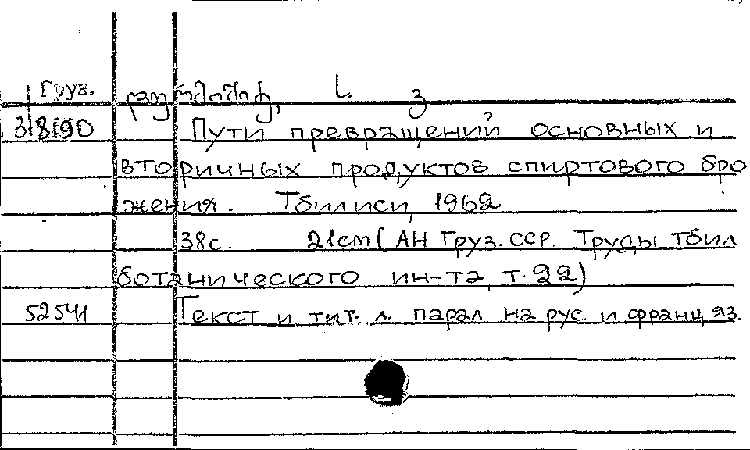 Груз. ს. ვ
318190
Пути превращений основных и
вторичных продуктов спиртового бро
жения. Тбилиси, 1962
38с. 21см (АН Груз. ССР. Труды Тбил
ботанического ин-та, т. 22)
52541 Текст и тит. л. парал на рус и франц яз.